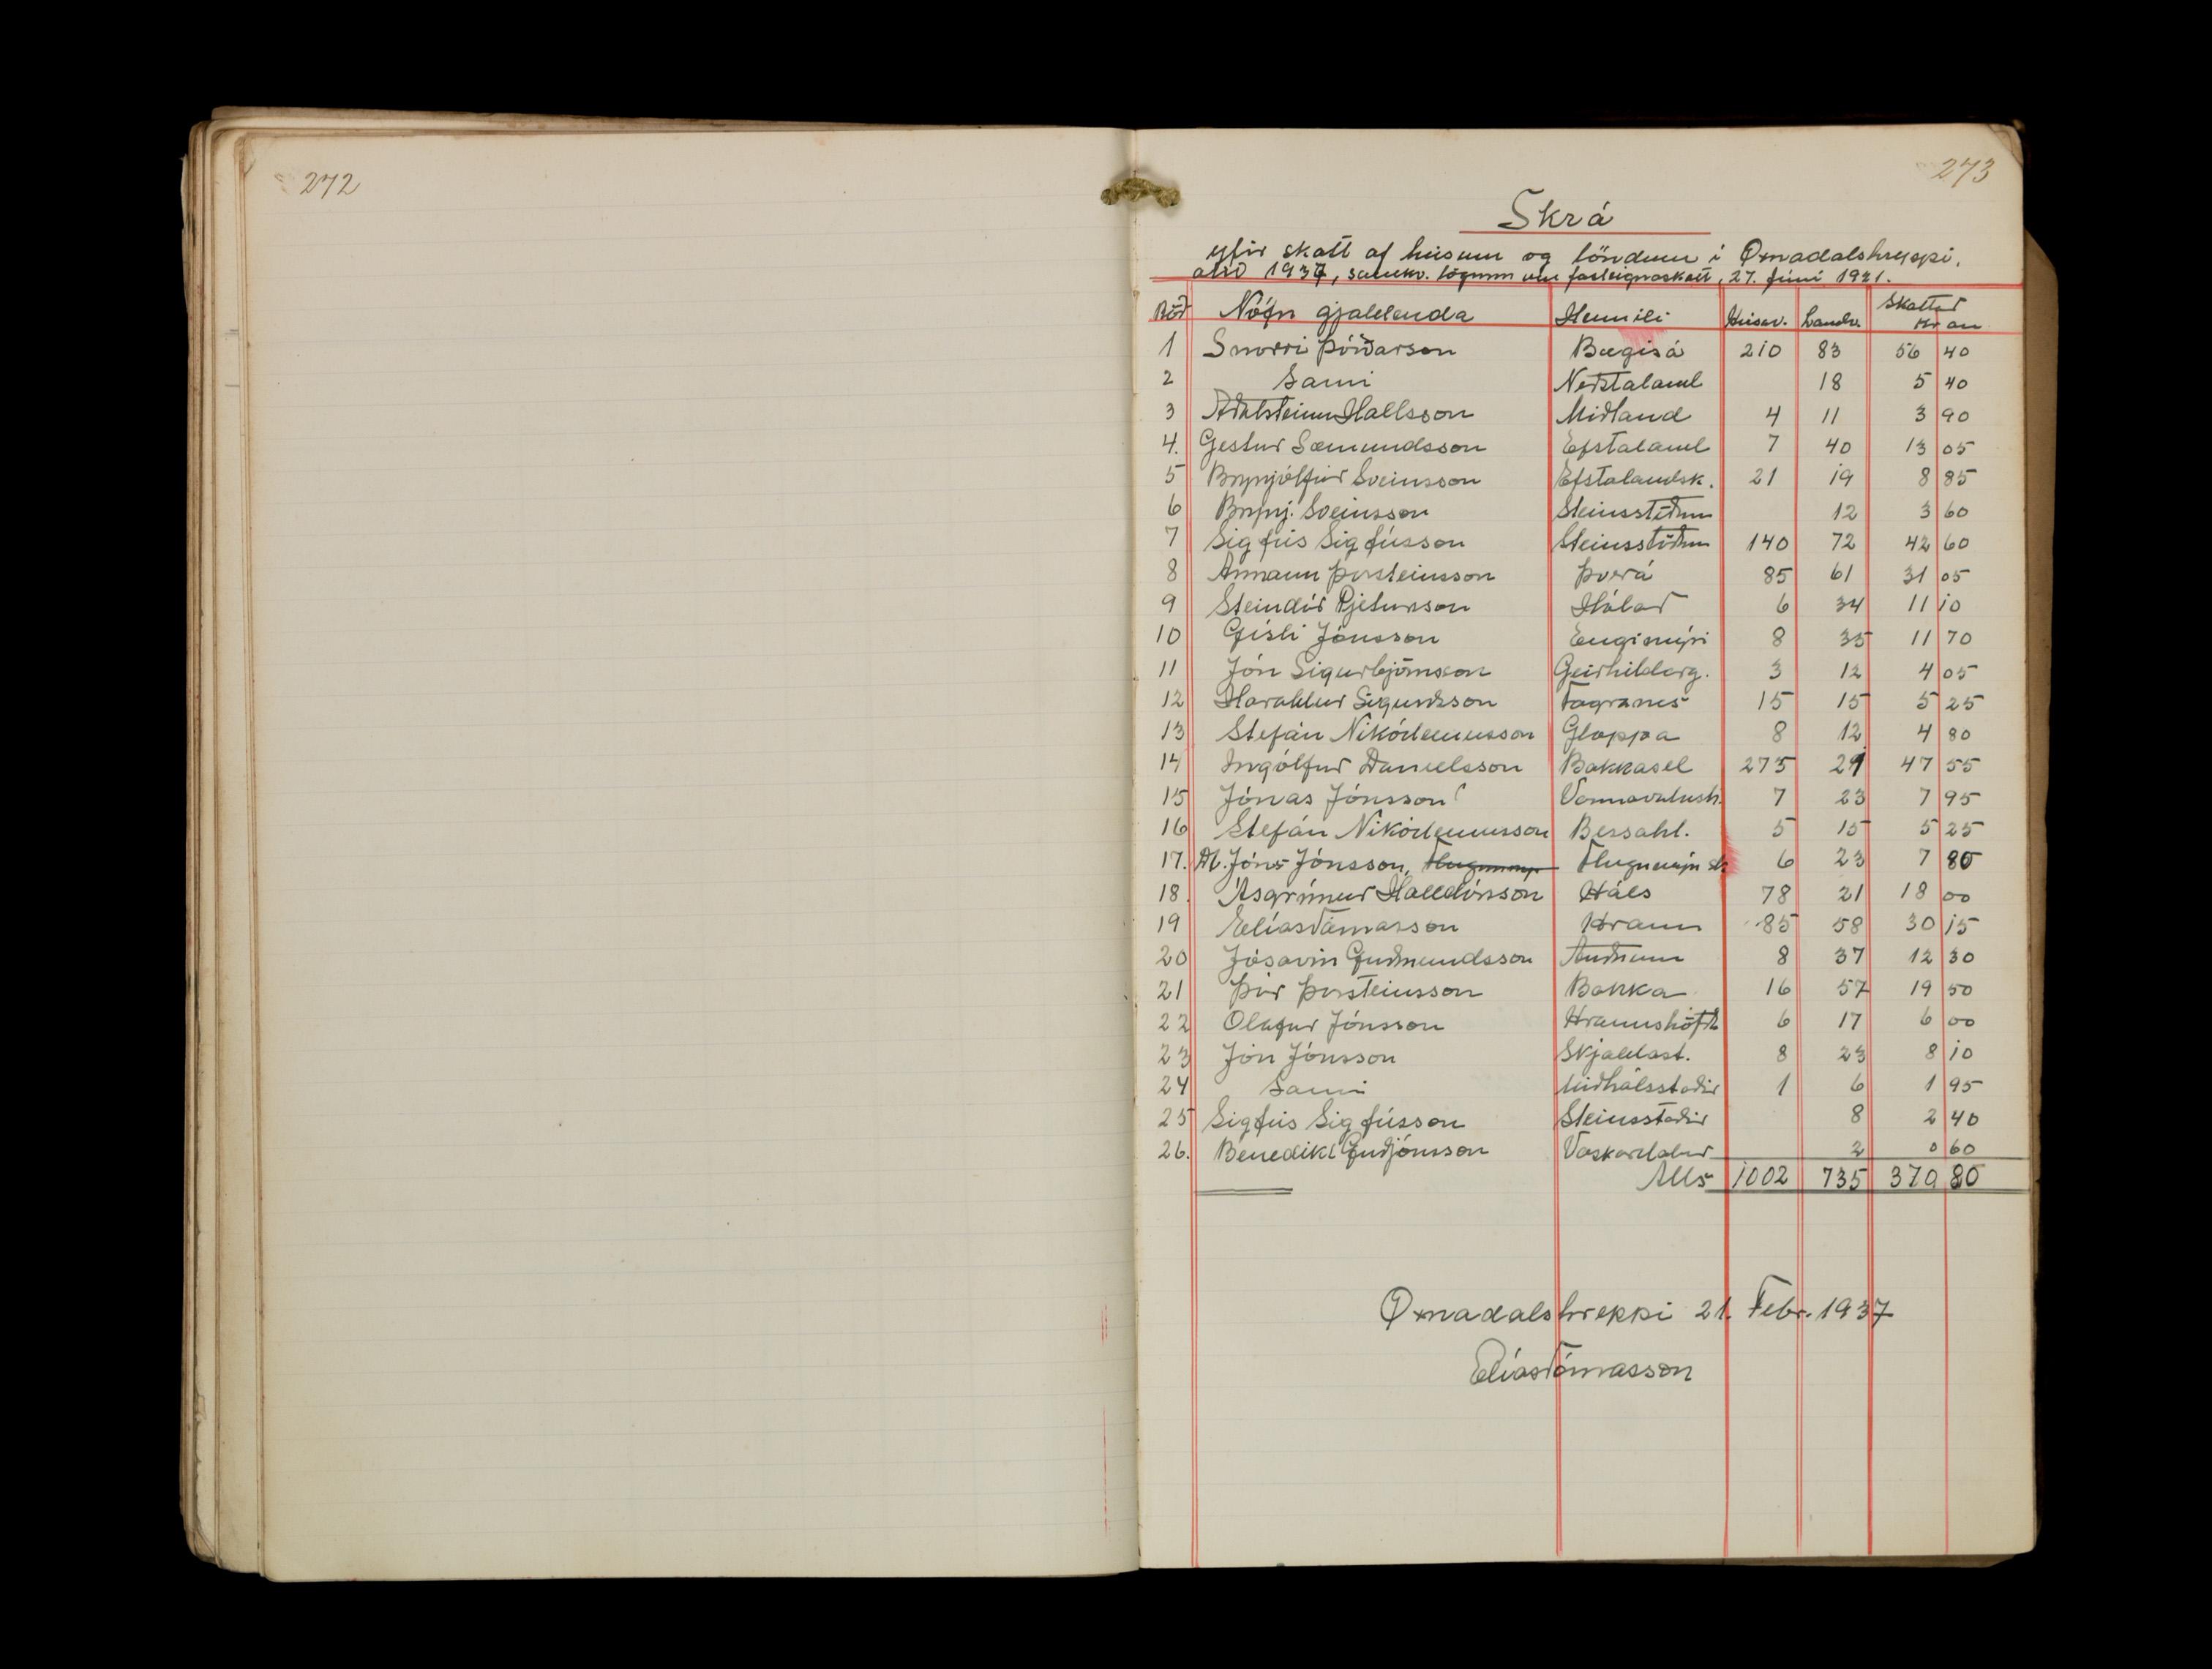 272
273
Skrá
yfir skatt af húsum og löndum í Öxnadalshreppi,
árið 1937, samkv. lögum um fasteignaskatt, 27. júní 1921.
Röð Nöfn gjaldenda Heimili Húsav. Landv. Skattur Kr au
1 Snorri Þórðarson Bægisá 210 83 56 40
2 Sami Neðstaland 18 5 40
3 Aðalsteinn Hallsson Miðland 4 11 3 90
4. Gestur Sæmundsson Efstaland 7 40 13 05
5 Brynjólfur Sveinsson Efstalandsk. 21 19 8 85
6 Brynj. Sveinsson Steinsstöðum 12 3 60
7 Sigfús Sigfússon Steinsstöðum 140 72 42 60
8 Ármann Þorsteinsson Þverá 85 61 31 05
9 Steindór Pjetursson Hólar 6 34 11 10
10 Gísli Jónsson Engimýri 8 35 11 70
11 Jón Sigurbjörnsson Geirhildarg. 3 12 4 05
12 Haraldur Sigurðsson Fagranes 15 15 5 25
13 Stefán Nikódemusson Gloppa 8 12 4 80
14 Ingólfur Daníelsson Bakkasel 275 21 47 55
15 Jónas Jónsson Varmavatnsh. 7 23 7 95
16 Stefán Nikódemusson Bessahl. 5 15 5 25
17. Jóns Jónsson, Flugumýr 6 23 7 80
18. Ásgrímur Halldórsson Háls 78 21 18 00
19 Elías Tómasson Hraun 85 58 30 15
20 Jósavin Guðmundsson Auðnum 8 37 12 30
21 Þór Þorsteinsson Bakka 16 57 19 50
22 Ólafur Jónsson Hraunshöfði 6 17 6 00
23 Jón Jónsson Skjaldast. 8 23 8 10
24 Sami Miðhálsstaðir 1 6 1 95
25 Sigfús Sigfússon Steinsstaðir 8 2 40
26. Benedikt Guðjónsson Vaskárdalur 2 0 60
Alls 1002 735 370 80
Öxnadalshreppi 21. Febr. 1937
Elías Tómasson